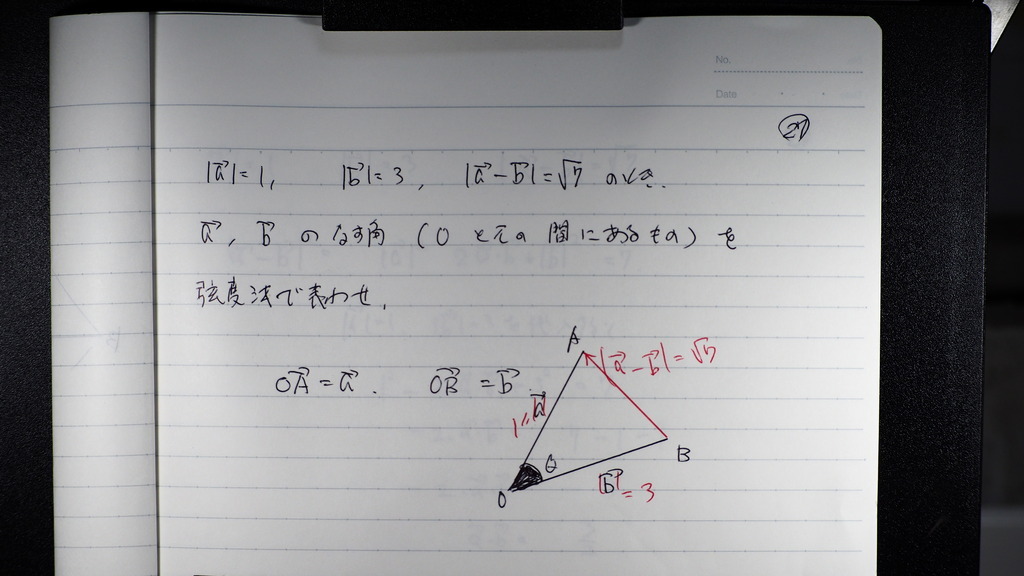 No.
Date
㉗
|a⃗|=1, |b⃗|=3, |a⃗-b⃗|=√7 のとき.
a⃗, b⃗ のなす角 (0 とπの間にあるもの) を
弧度法で表わせ.
OA⃗=a⃗. OB⃗=b⃗.
A
|a⃗-b⃗|=√7
1=|a⃗|
θ
B
O
|b⃗|=3